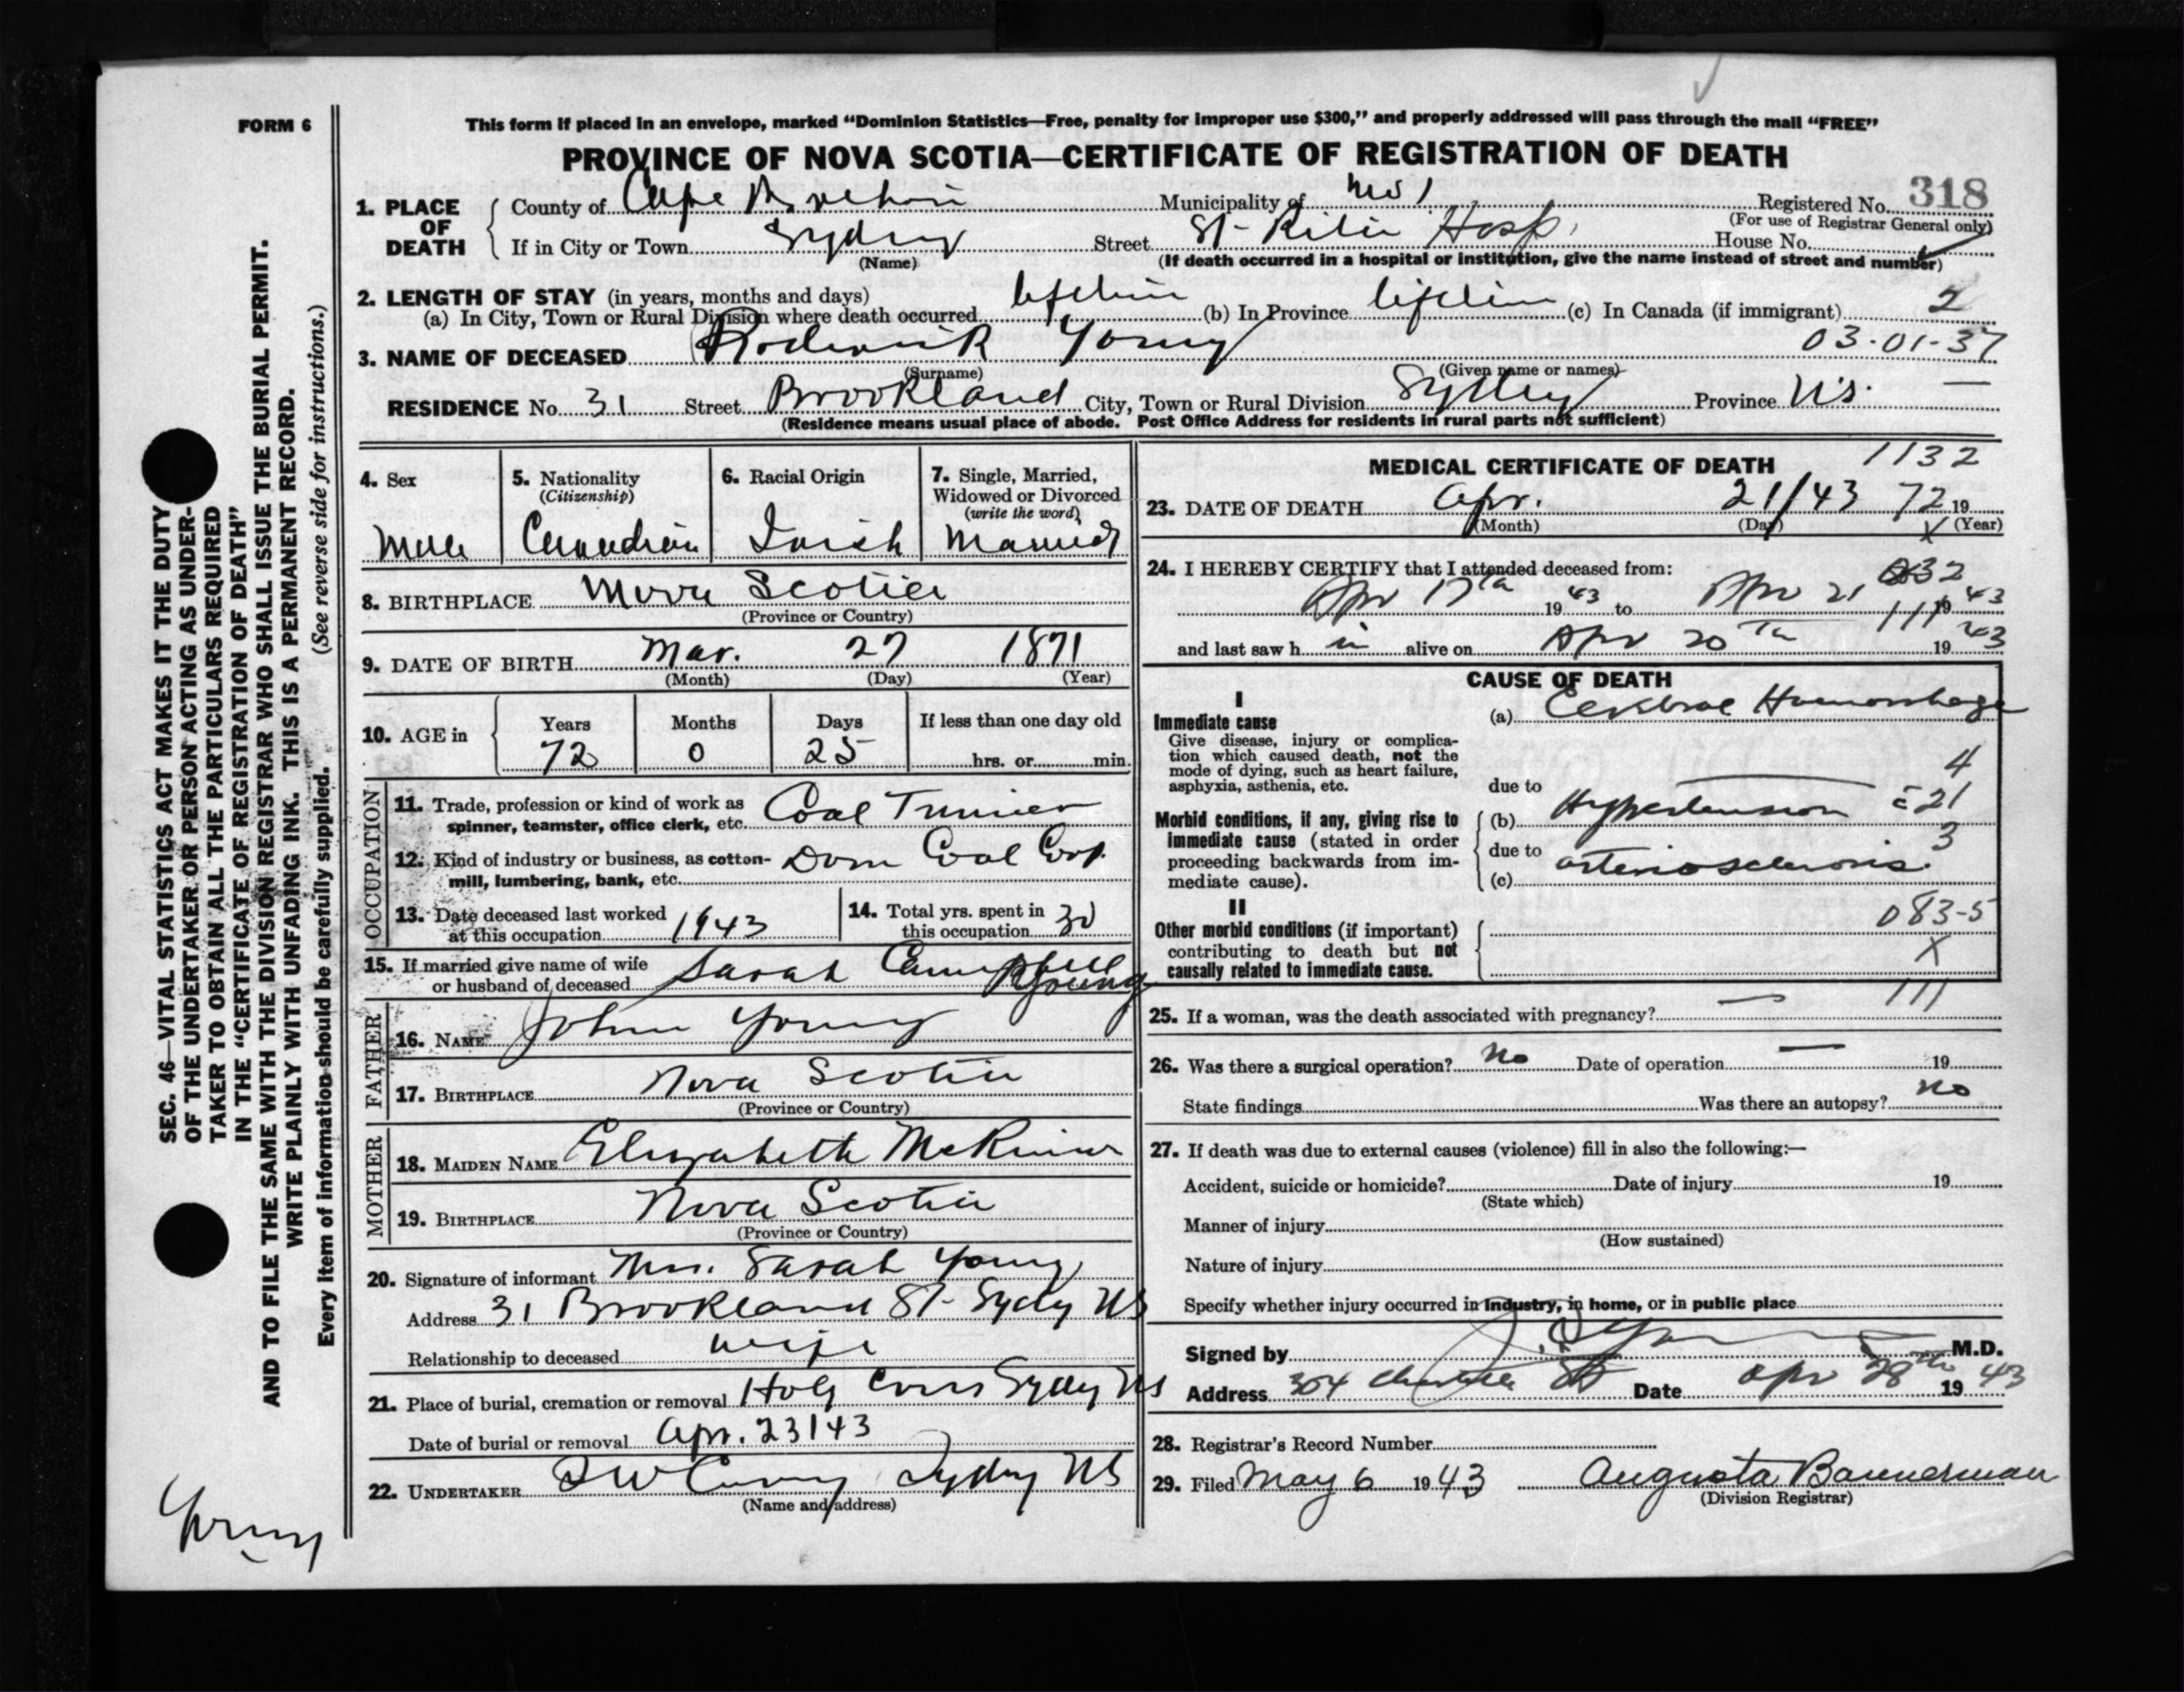 FORM 6
This form if placed in an envelope, marked “Dominion Statistics—Free, penalty for improper use $300,” and properly addressed will pass through the mail “FREE”
PROVINCE OF NOVA SCOTIA—CERTIFICATE OF REGISTRATION OF DEATH
1. PLACE OF DEATH
County of Cape Breton Municipality of No 1 Registered No. 318
(For use of Registrar General only)
If in City or Town Sydney Street St- Rita Hosp. House No.
(Name) (If death occurred in a hospital or institution, give the name instead of street and number)
2. LENGTH OF STAY (in years, months and days)
(a) In City, Town or Rural Division where death occurred lifetime (b) In Province lifetime (c) In Canada (if immigrant) 2
03-01-37
3. NAME OF DECEASED Roderick Young
(Surname) (Given name or names)
RESIDENCE No. 31 Street Brookland City, Town or Rural Division Sydney Province N.S. —
(Residence means usual place of abode. Post Office Address for residents in rural parts not sufficient)
4. Sex
Male
5. Nationality
(Citizenship)
Canadian
6. Racial Origin
Irish
7. Single, Married,
Widowed or Divorced
(write the word)
Married
8. BIRTHPLACE Nova Scotia
(Province or Country)
9. DATE OF BIRTH Mar. 27 1871
(Month) (Day) (Year)
10. AGE in Years Months Days If less than one day old
72 0 25 hrs. or min.
OCCUPATION
11. Trade, profession or kind of work as
spinner, teamster, office clerk, etc. Coal Trimmer
12. Kind of industry or business, as cotton-
mill, lumbering, bank, etc. Dom Coal Corp.
13. Date deceased last worked
at this occupation 1943
14. Total yrs. spent in
this occupation 30
15. If married give name of wife
or husband of deceased Sarah Campbell Young
FATHER
16. NAME John Young
17. BIRTHPLACE Nova Scotia
(Province or Country)
MOTHER
18. MAIDEN NAME Elizabeth
19. BIRTHPLACE Nova Scotia
(Province or Country)
20. Signature of informant Mrs. Sarah Young
Address 31 Brookland St- Sydney NS
Relationship to deceased wife
21. Place of burial, cremation or removal Holy Cross Sydney NS
Date of burial or removal Apr. 23/43
22. UNDERTAKER Sydney NS
(Name and address)
MEDICAL CERTIFICATE OF DEATH 1132
23. DATE OF DEATH Apr. 21/43 72 19
(Month) (Day) X (Year)
24. I HEREBY CERTIFY that I attended deceased from:
Apr 17th 1943 to Apr 21 1943
and last saw h im alive on Apr 20th 1943
CAUSE OF DEATH
I
Immediate cause
Give disease, injury or complica-
tion which caused death, not the
mode of dying, such as heart failure,
asphyxia, asthenia, etc.
(a) Cerebral Haemorrhage
4
due to
Morbid conditions, if any, giving rise to
immediate cause (stated in order
proceeding backwards from im-
mediate cause).
(b) Hypertension c̄ 21
3
due to
(c) arteriosclerosis
II
Other morbid conditions (if important)
contributing to death but not
causally related to immediate cause.
083-5
X
111
25. If a woman, was the death associated with pregnancy? —
26. Was there a surgical operation? No Date of operation — 19
State findings Was there an autopsy? no
27. If death was due to external causes (violence) fill in also the following:—
Accident, suicide or homicide? Date of injury 19
(State which)
Manner of injury
(How sustained)
Nature of injury
Specify whether injury occurred in industry, in home, or in public place
Signed by M.D.
Address 304 Charlotte St Date Apr 28th 1943
28. Registrar's Record Number
29. Filed May 6 1943 Augusta Bannerman
(Division Registrar)
SEC. 46—VITAL STATISTICS ACT MAKES IT THE DUTY
OF THE UNDERTAKER OR PERSON ACTING AS UNDER-
TAKER TO OBTAIN ALL THE PARTICULARS REQUIRED
IN THE “CERTIFICATE OF REGISTRATION OF DEATH”
AND TO FILE THE SAME WITH THE DIVISION REGISTRAR WHO SHALL ISSUE THE BURIAL PERMIT.
WRITE PLAINLY WITH UNFADING INK. THIS IS A PERMANENT RECORD.
Every item of information should be carefully supplied. (See reverse side for instructions.)
Young